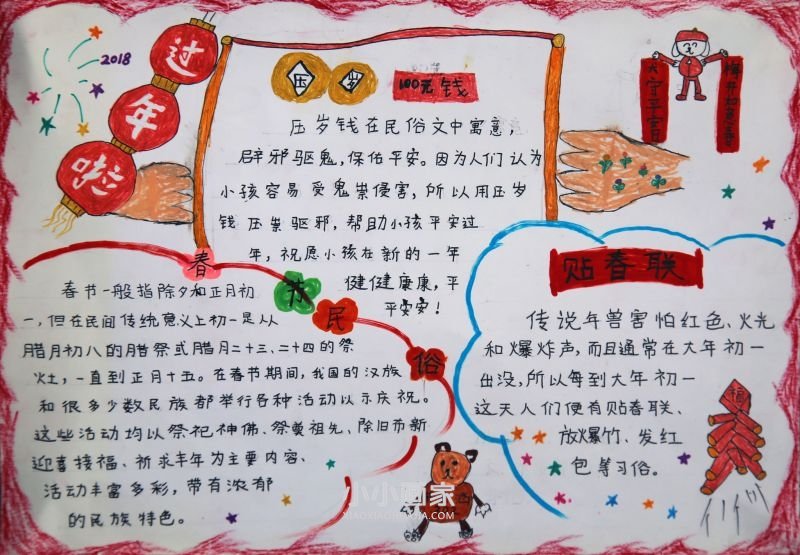 过年啦
2018
压岁
100元钱
压岁钱在民俗文中寓意，
辟邪驱鬼，保佑平安。因为人们认为
小孩容易受鬼祟侵害，所以用压岁
钱压祟驱邪，帮助小孩平安过
年，祝愿小孩在新的一年
健健康康，平
平安安！
春节民俗
春节一般指除夕和正月初
一，但在民间传统意义上初一是从
腊月初八的腊祭或腊月二十三、二十四的祭
灶，一直到正月十五。在春节期间，我国的汉族
和很多少数民族都举行各种活动以示庆祝。
这些活动均以祭祀神佛、祭奠祖先、除旧布新
迎喜接福、祈求丰年为主要内容、
活动丰富多彩，带有浓郁
的民族特色。
贴春联
传说年兽害怕红色、火光
和爆炸声，而且通常在大年初一
出没，所以每到大年初一
这天人们便有贴春联、
放爆竹、发红
包等习俗。
福
小小画家